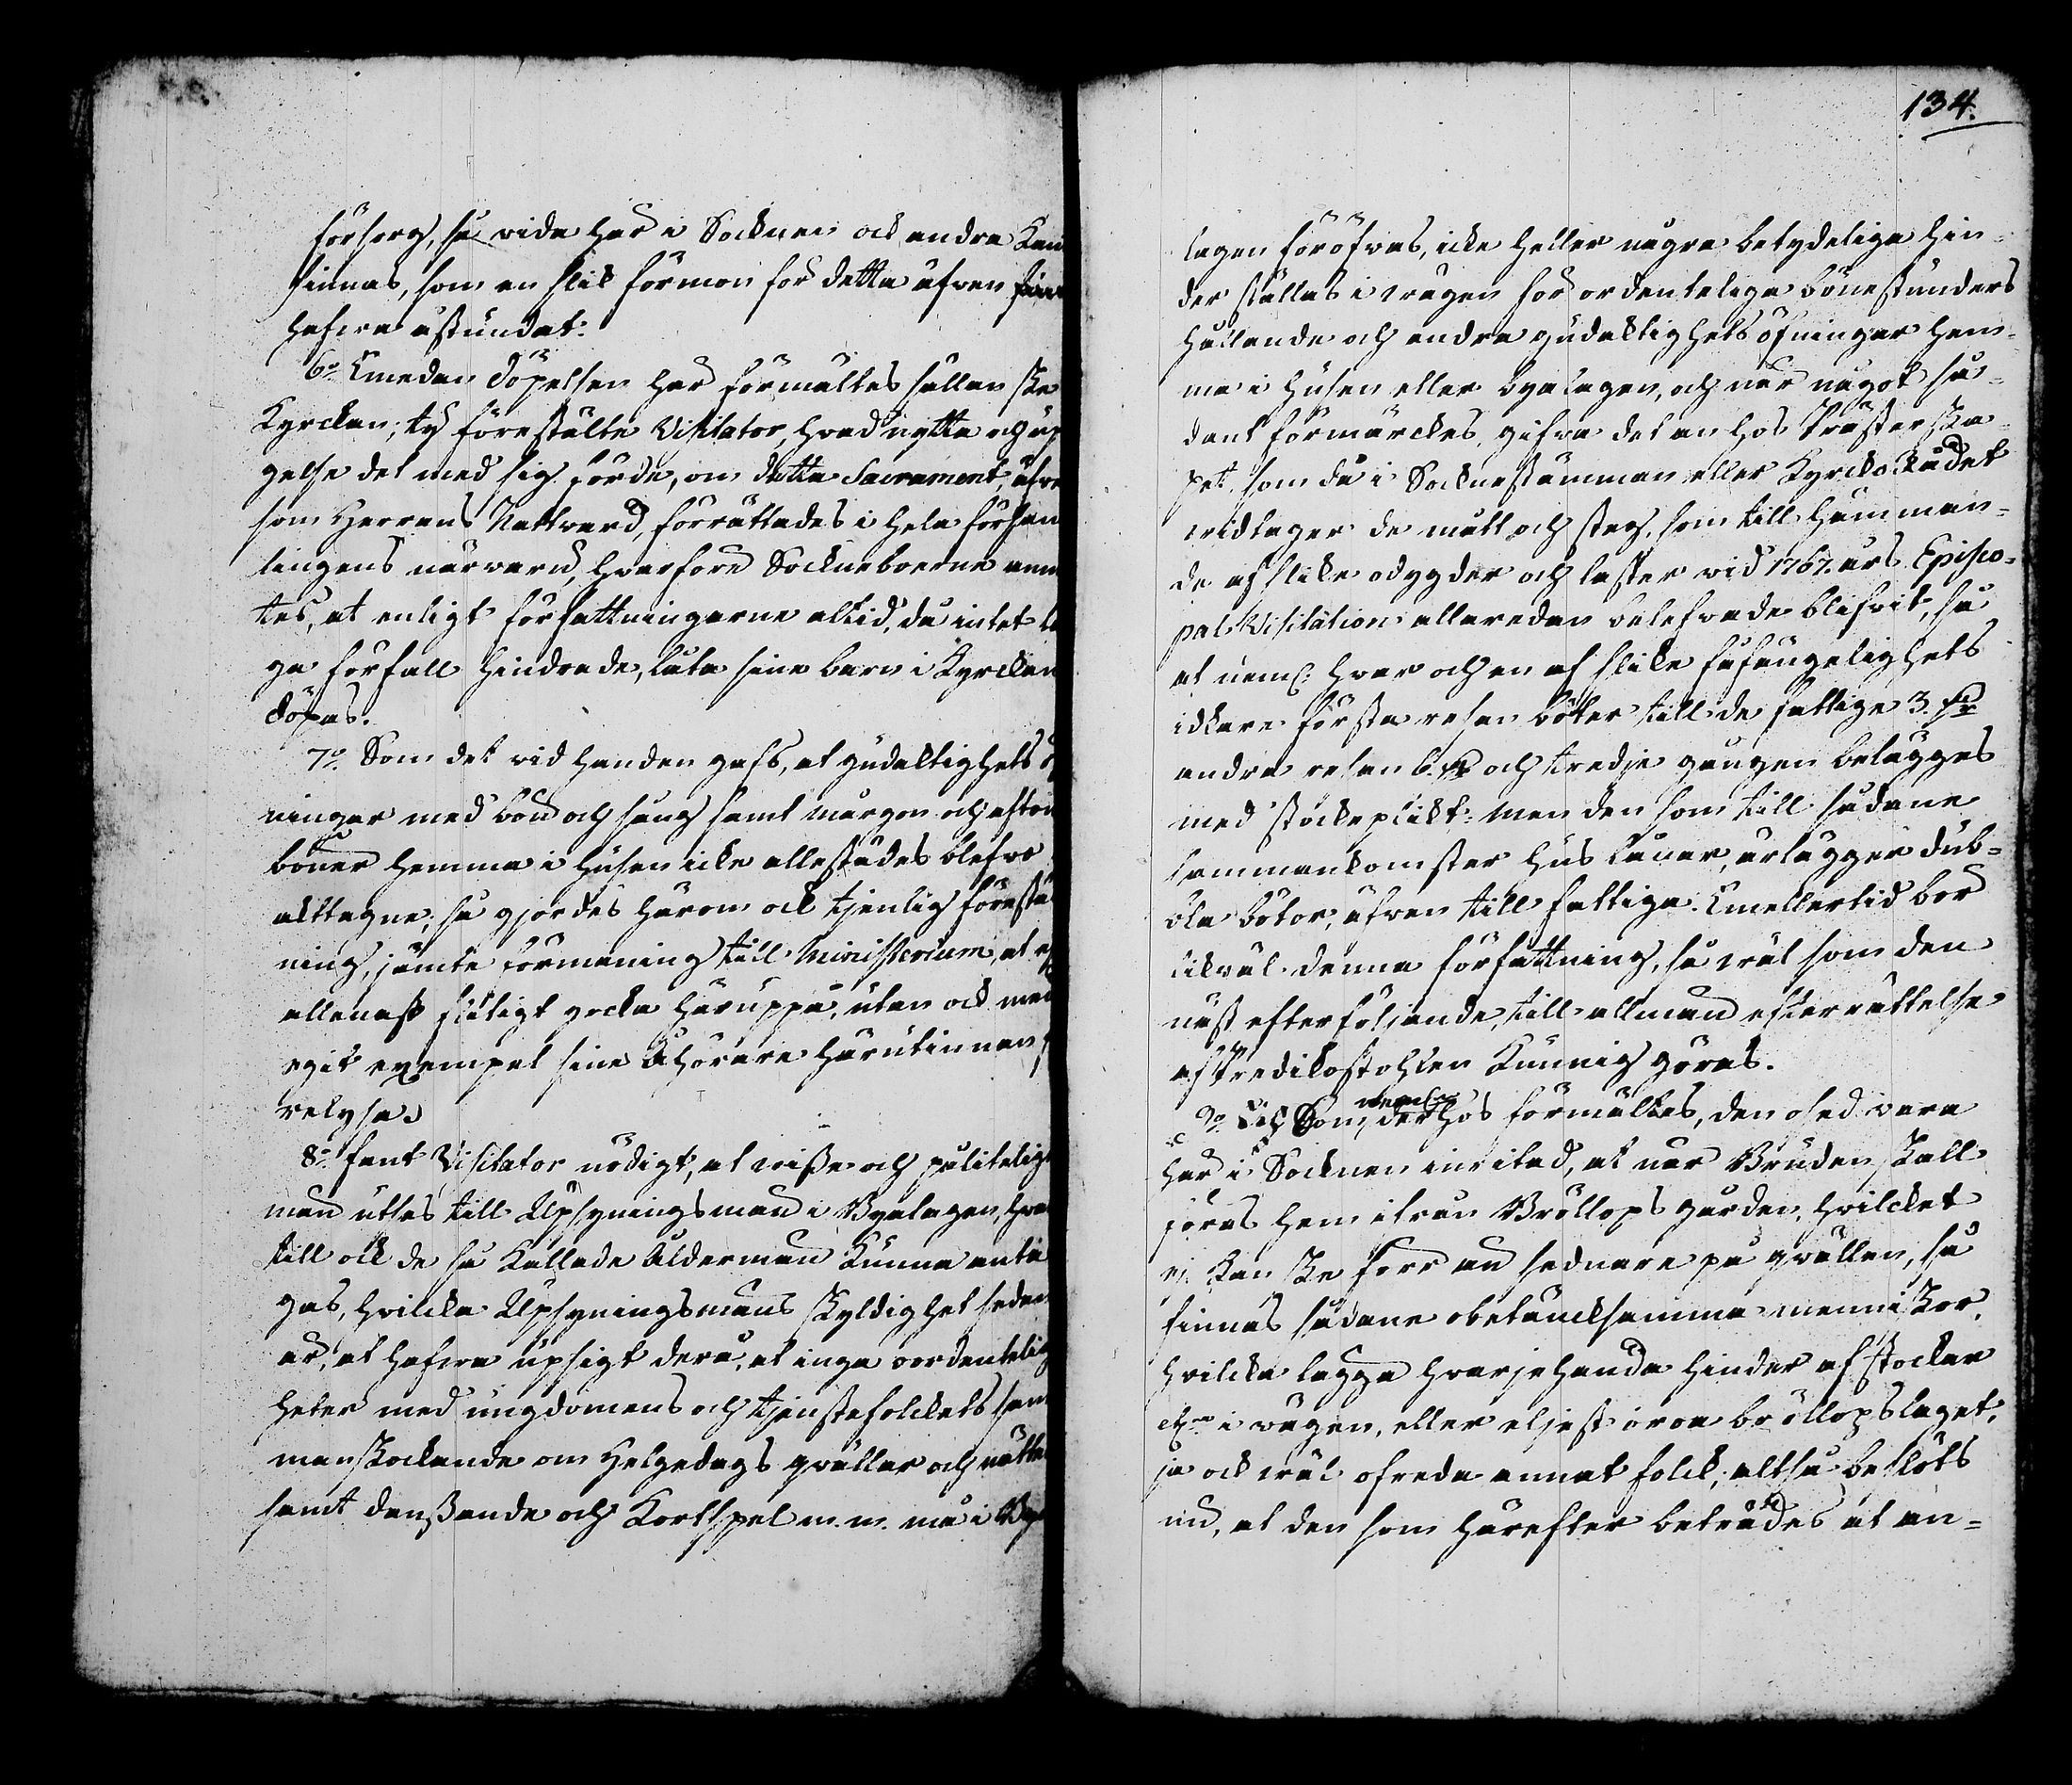 försorg, så vida här i Socknen ock andra
finnas, som en slik förmon för detta äfven
hafva åstundat.
6:o Emedan döpelsen här förmältes sällan ske i
Kyrckan; ty förestälte Visitator, hvad nytta och up
gelse det med sig förde, om detta Sacrament, äfve
som Herrans Nattvard, förrättades i hela försam
lingens närvaru, hvarföre Sockneboerne
tes, at enligt författningarne altid, då intet la
ga förfall hindrade, låta sine barn i Kyrckan
döpas.
7:o Som det vid handen gafs, at gudaktighets öf
ningar med bön och sång samt morgon och afton
böner hemma i husen icke allestädes blefvo
akttagne; så gjordes härom ock tjenlig förestäl
ning, jämte förmaning till Ministerium, at ej
allenast flitigt yrcka häruppå, utan ock med
egit exempel sine Åhörare härutinnan
relysa.
8:o fant Visitator nödigt, at visse och pålitelige
män uttes till Upsyningsmän i Byalagen, hvar
till ock de så kallade Åldermän kunna anta
gas, hvilcka Upsyningsmäns skyldighet sedan
är, at hafva upsigt derå, at inga oordentelig
heter med ungdomens och tjenstefolckets sam
manskockande om helgedags qvällar och nätter
samt dansande och Kortspel m. m. må i Bya
134.
lagen föröfvas, icke heller några betydeliga hin-
der ställas i vägen för ordenteliga bönestunders
hållande och andra gudaktighets öfningar hem-
ma i husen eller byalagen, och när något så-
dant förmärckes, gifva det an hos Prästerska-
pet, som då i Socknestämman eller Kyrckorådet
vidtager de mått och steg, som till hämman-
de af slike odygder och laster vid 1767. års Episco-
pal Visitation allaredan belefvade blifvit, så
at neml: hvar och en af slike fåfängelighets
idkare första resan böter till de fattige 3.
andra resan 6. och tredje gången belägges
med stockeplickt: men den som till sådane
sammankomster hus lånar, erlägger dub-
bla böter, äfven till fattiga. Emellertid bör
likväl denna författning, så väl som den
näst efterföljande, till allmän efterrättelse
af Predikostohlen Kunnig göras.
9:o Som neml: derhos förmältes, den osed vara
här i Socknen inritad, at när Bruden skall
föras hem ifrån Bröllops gården, hvilcket
ej kan ske förr än sednare på qvällen, så
finnas sådane obetäncksamma menniskor,
hvilcka lägga hvarjehanda hinder af stockar
etc. i vägen, eller eljest oroa bröllopslaget,
ja ock väl ofreda annat folck; altså beslöts
nu, at den som härefter beträdes åt an-